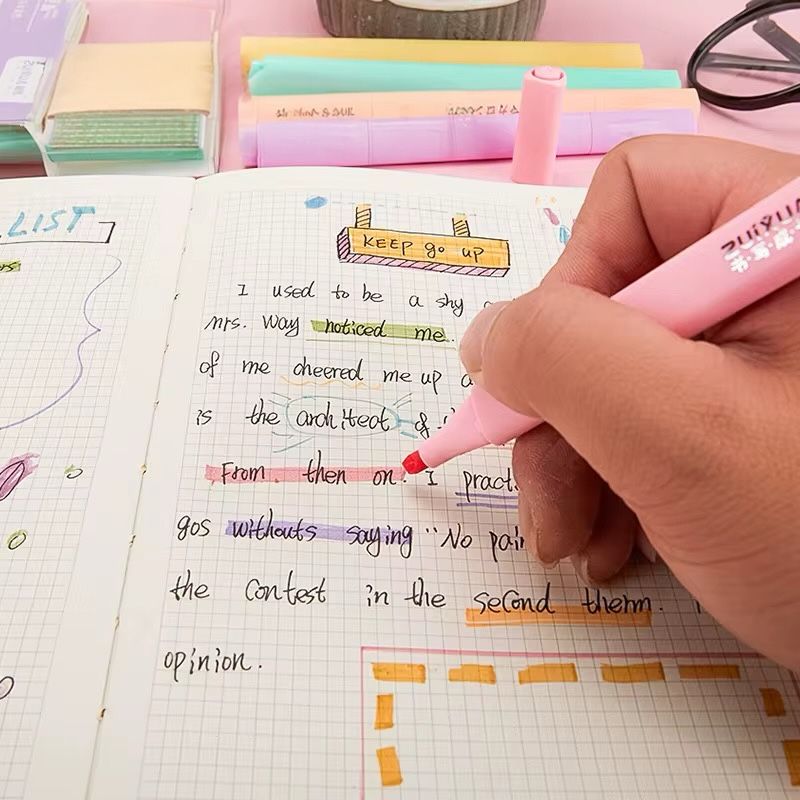 LIST
KEEP go up
I used to be a shy
mrs. Way noticed me.
of me cheered me up
is the architect of
From. then on. I pract
gos withouts saying "No pain
the Contest in the second therm.
opinion.